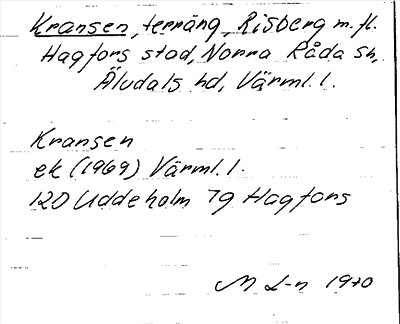 Kransen, terräng, Risberg m. fl.
Hagfors stad, Norra Råda sn,
Äludals hd, Värml. l.
Kransen
ek (1969) Värml. l.
12D Uddeholm 7g Hagfors
M L-n 1970